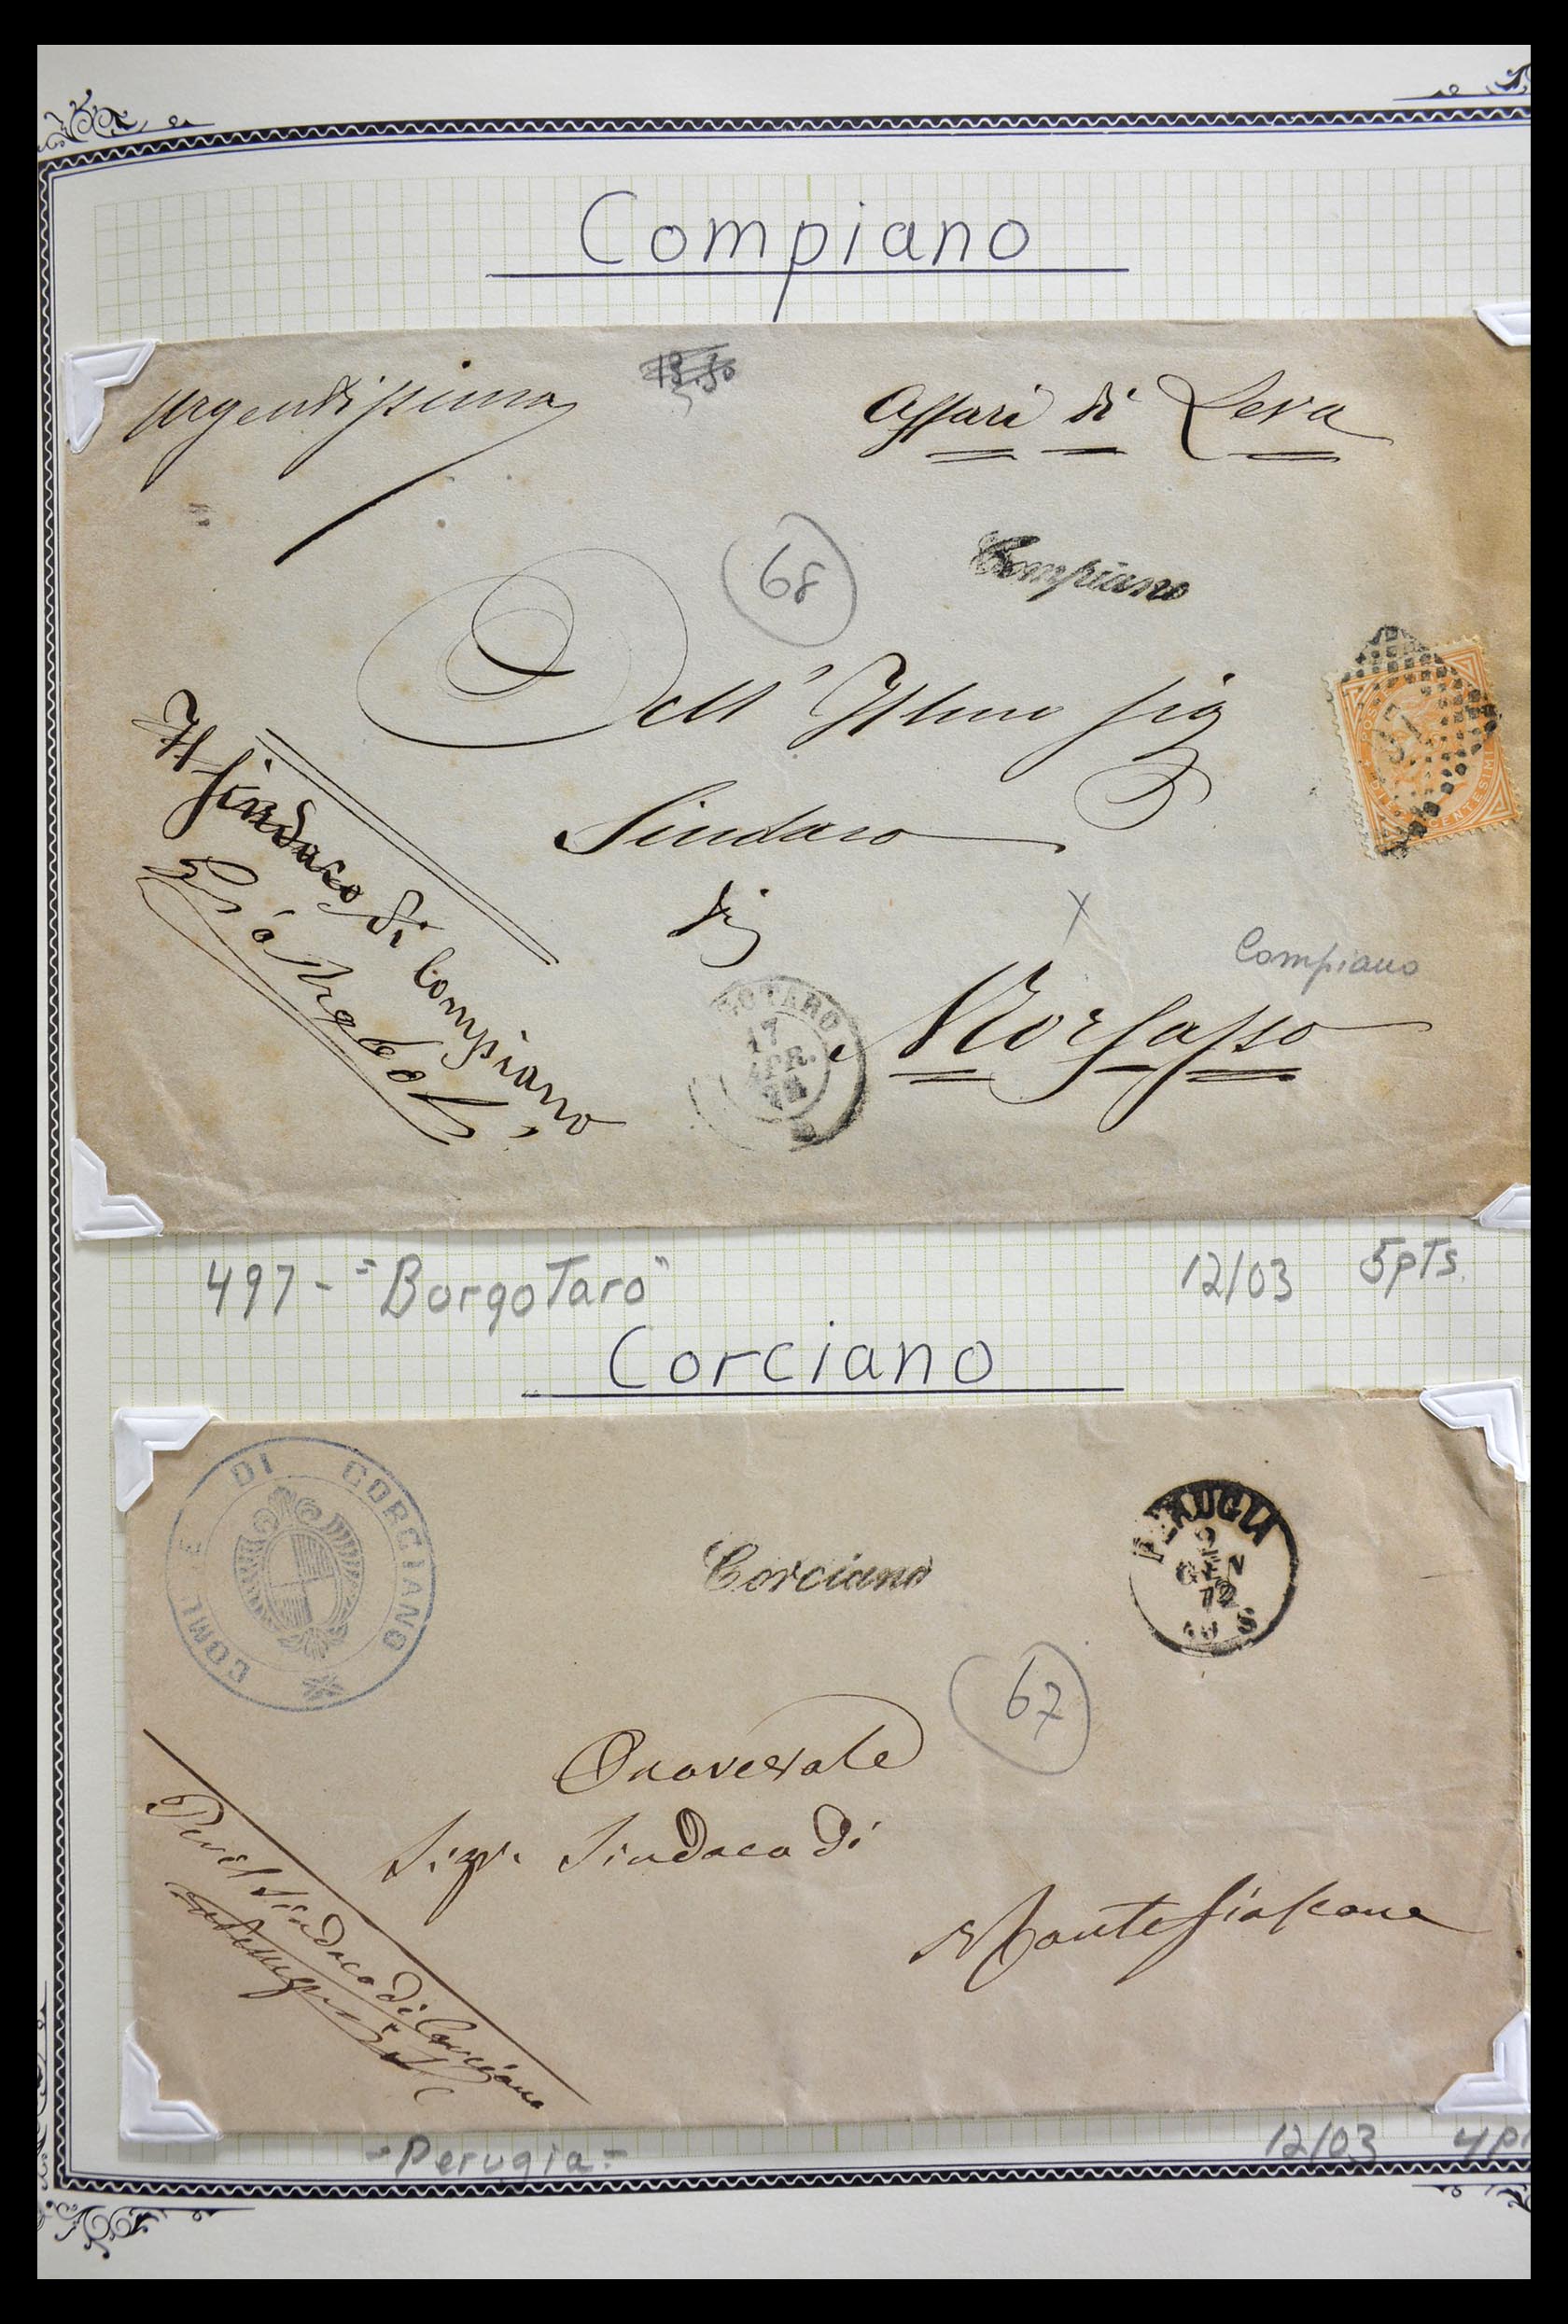 Compiano
urgentissima
13.50
Affari di Leva
68
Compiano
Dell' Illmo Sig
Sindaco
di
Morfasso
Compiano
x
Il Sindaco di Compiano
GOTARO
17
APR.
DIECI CENTESIMI
497 - "BorgoTaro"
12/03 5pTs.
Corciano
COM E DI CORCIANO
Corciano
PERUGIA
2
GEN
72
10 S
67
Onorevole
Sigr. Sindaco di
Montefiascone
Per il Sindaco di Corciano
- Perugia -
12/03 4p